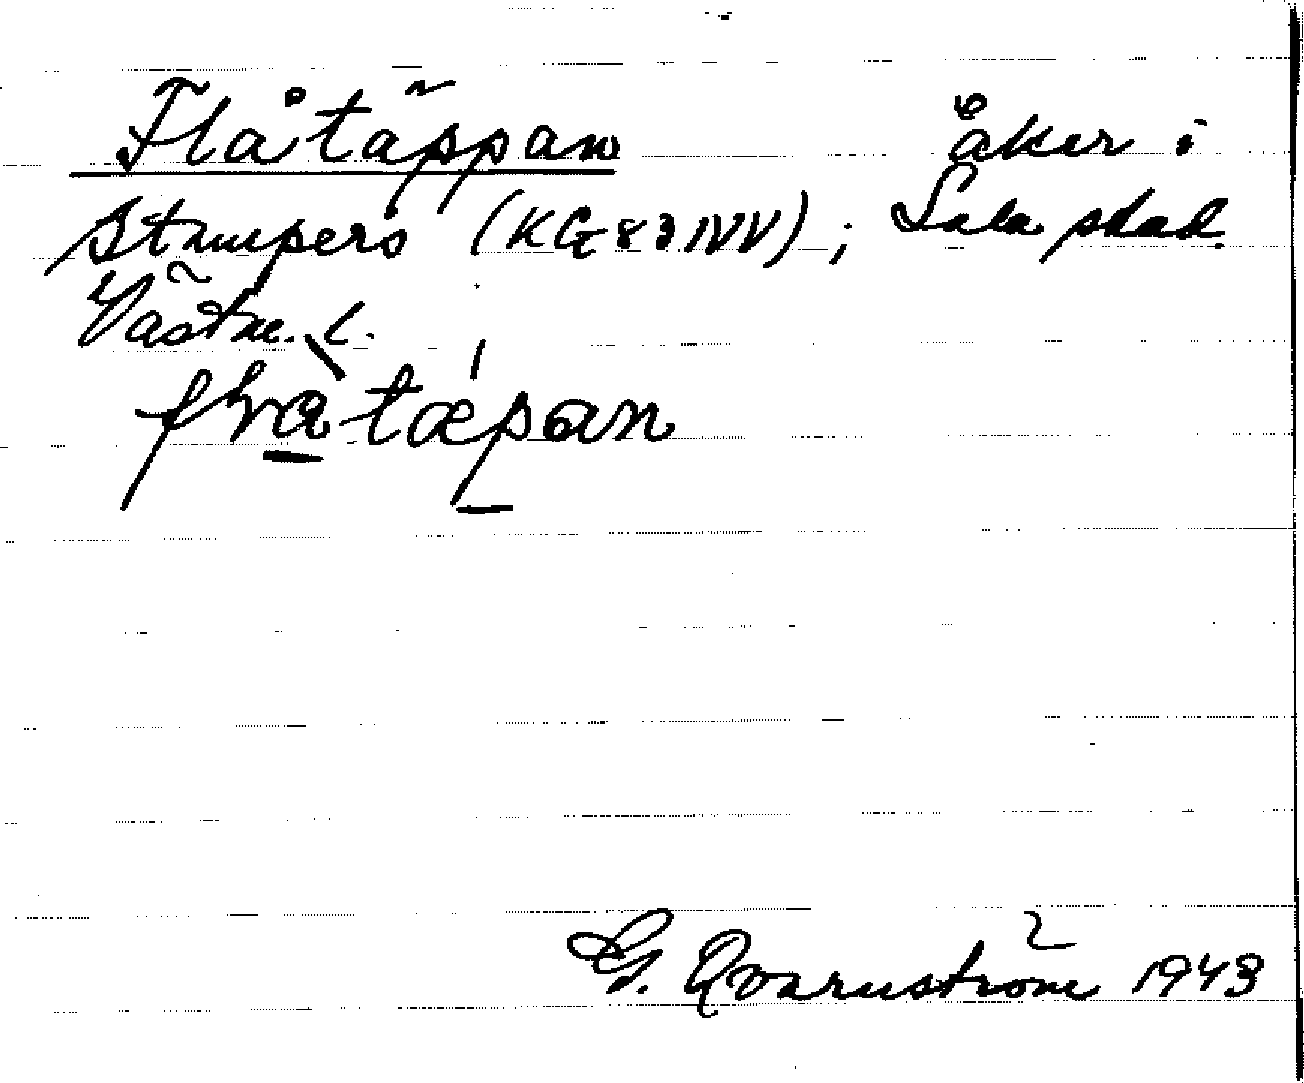 Flåtäppan åker i
Stampers (KG 83 NV); Sala stad.
Västm. l.
flvàtǽpan
G. Qvarnström 1943